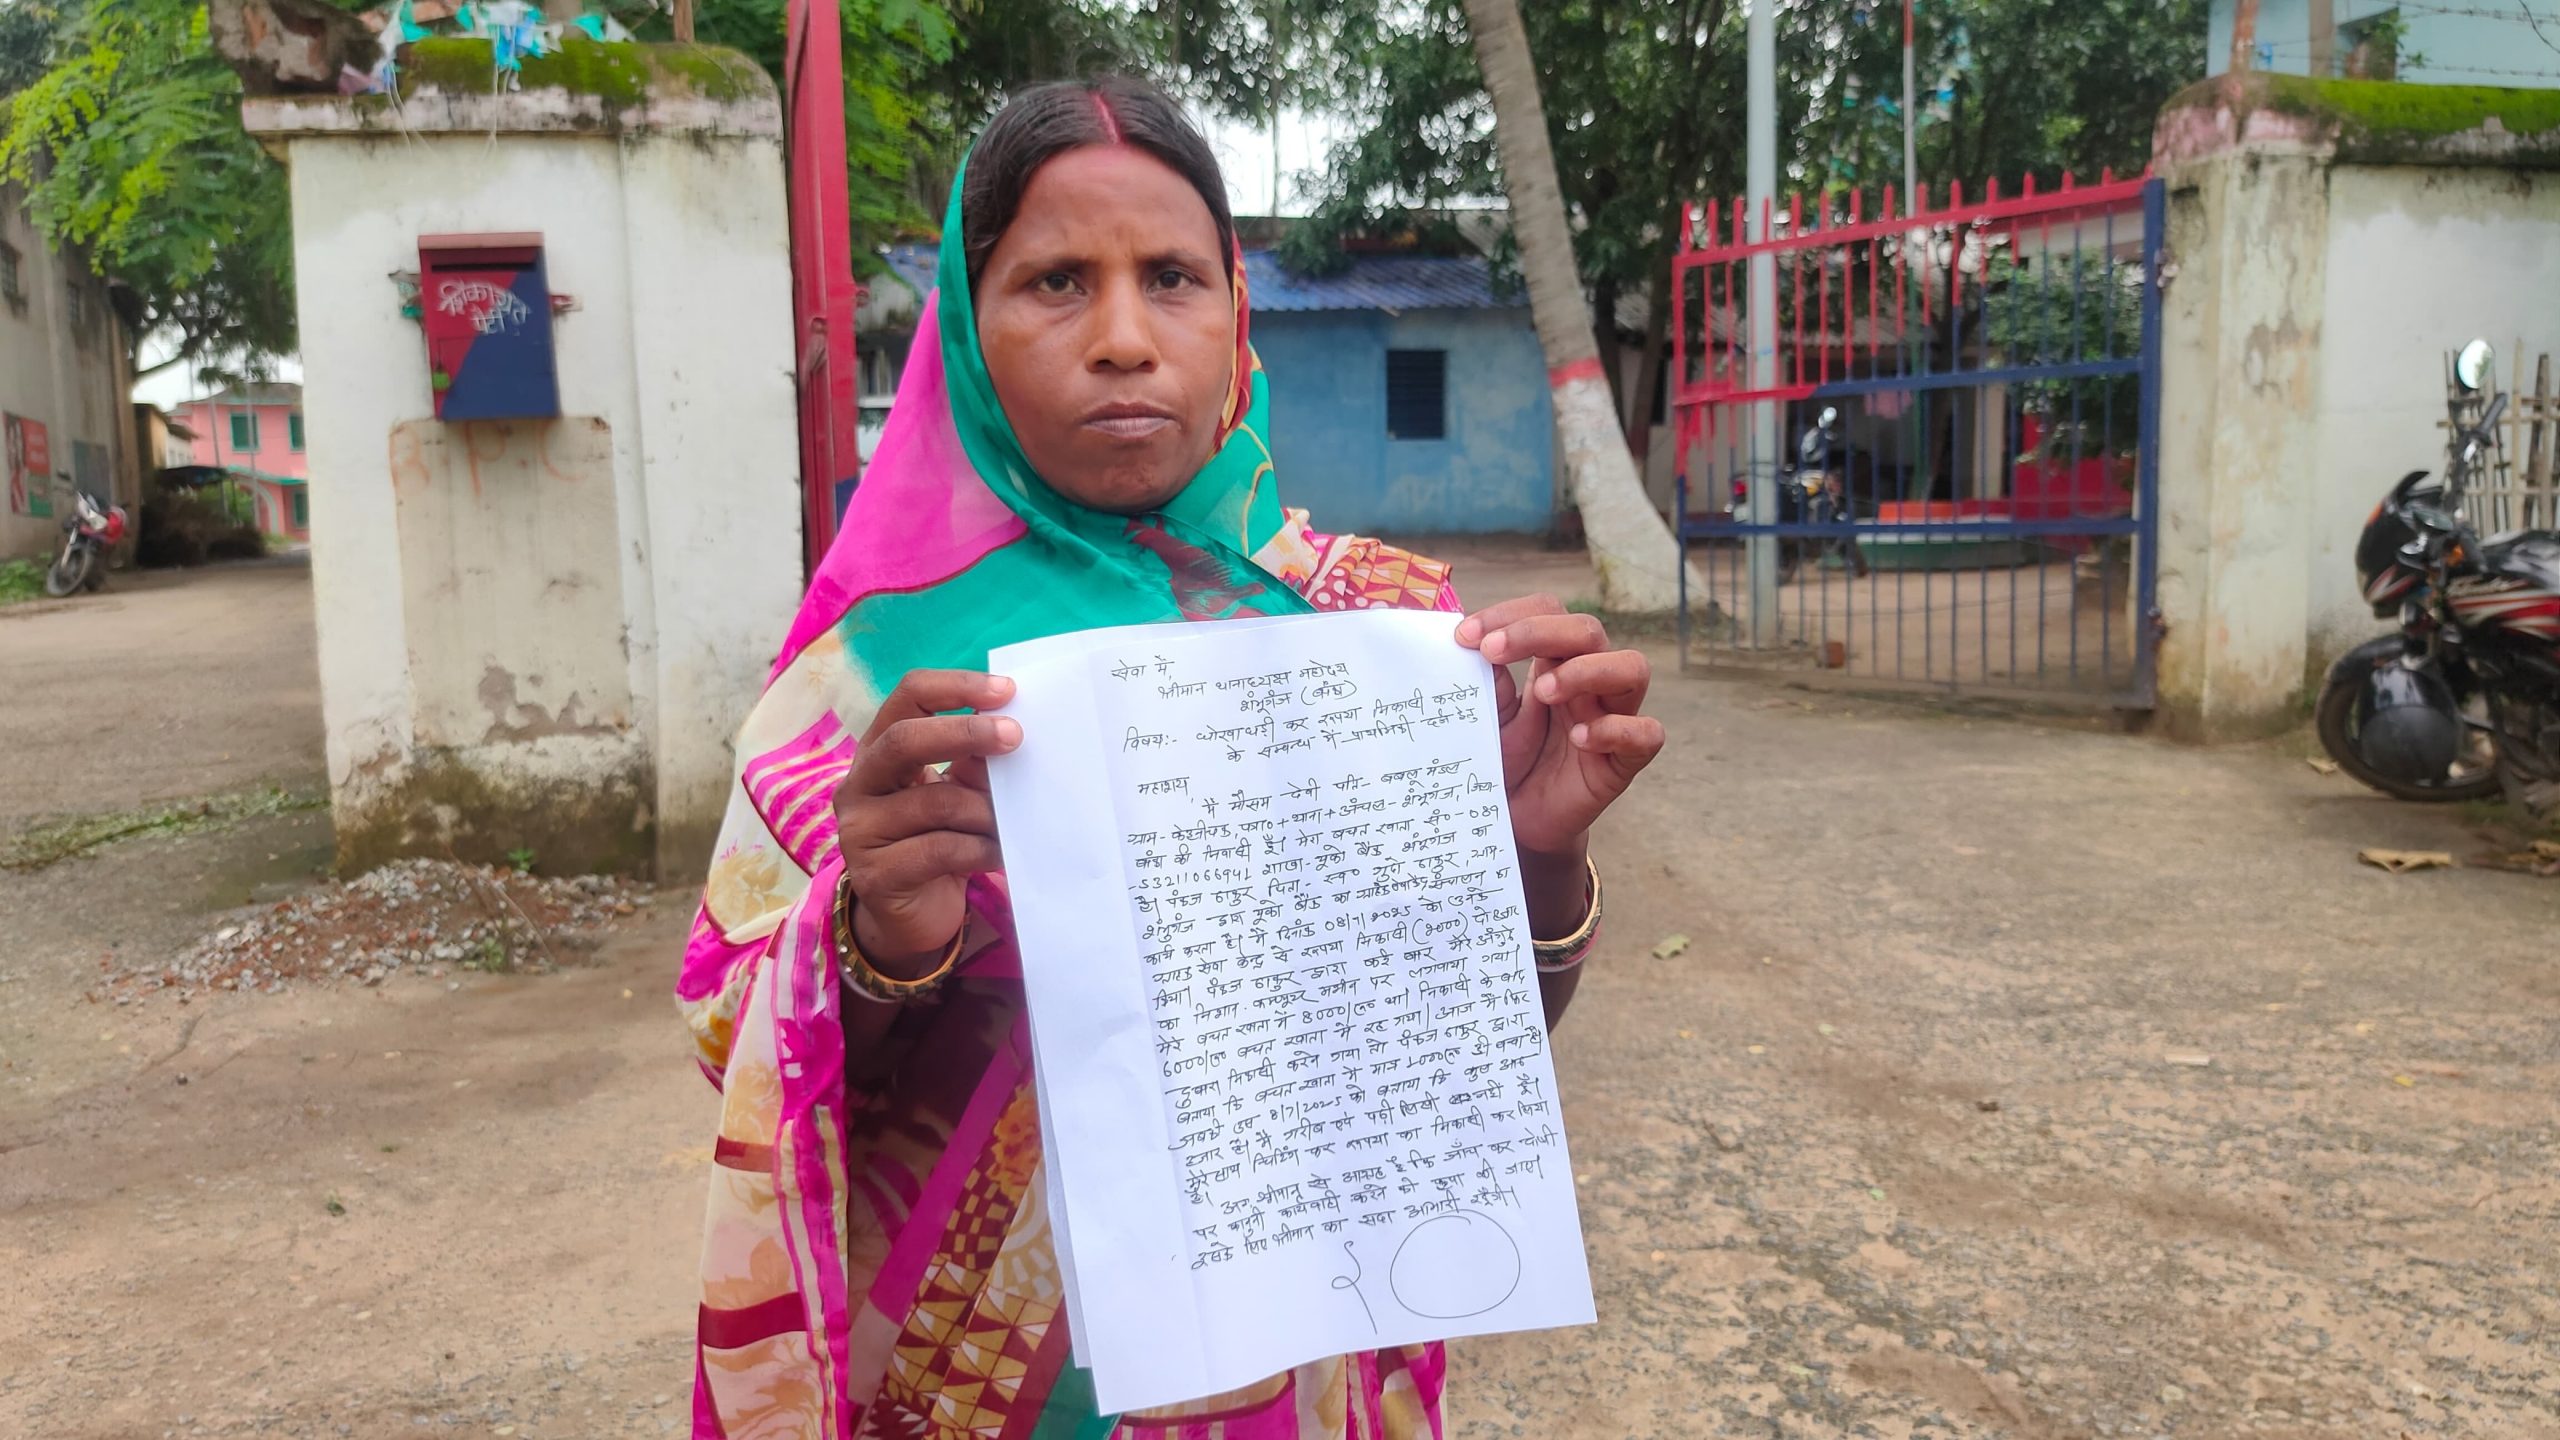 शिकायत
पेटी
B.P.C
सेवा में,
श्रीमान थानाध्यक्ष महोदय
शंभूगंज (बांका)
विषय:- धोखाधड़ी कर रूपया निकासी करलेने
के सम्बन्ध में प्राथमिकी दर्ज हेतु
महाशय,
मैं मौसम देवी पति- बबलू मंडल
ग्राम- पो०+थाना+अंचल-शंभूगंज, जिला-
बांका की निवासी हूँ। मेरा बचत खाता सं०-089
-53211066941 शाखा-यूको बैंक शंभूगंज का
है। पंकज ठाकुर पिता- स्व० ठाकुर, ग्राम-
शंभुगंज द्वारा यूको बैंक का संचालन का
कार्य करता है। मैं दिनांक 08/7/2025 को उनके
ग्राहक सेवा केन्द्र से रूपया निकासी (2000) दो हजार
किया। पंकज ठाकुर द्वारा कई बार मेरे अँगुठे
का निशान कम्प्यूटर मशीन पर लगवाया गया।
मेरे बचत खाता में 8000/रू० था। निकासी के बाद
6000/रू० बचत खाता में रह गया। आज मैं फिर
दुबारा निकासी करने गया तो पंकज ठाकुर द्वारा
बताया कि बचत खाता में मात्र 1000रू० ही बचा है।
जबकी 8/7/2025 को बताया कि कुल
हजार है। मैं गरीब एवं पढ़ी लिखी नहीं हूँ।
मेरे साथ चिटिंग कर रूपया का निकासी कर लिया
है। अतः श्रीमान् से आग्रह है कि जाँच कर दोषी
पर कानुनी कार्यवाही करने की कृपा की जाए।
इसके लिए श्रीमान का सदा आभारी रहूँगी।